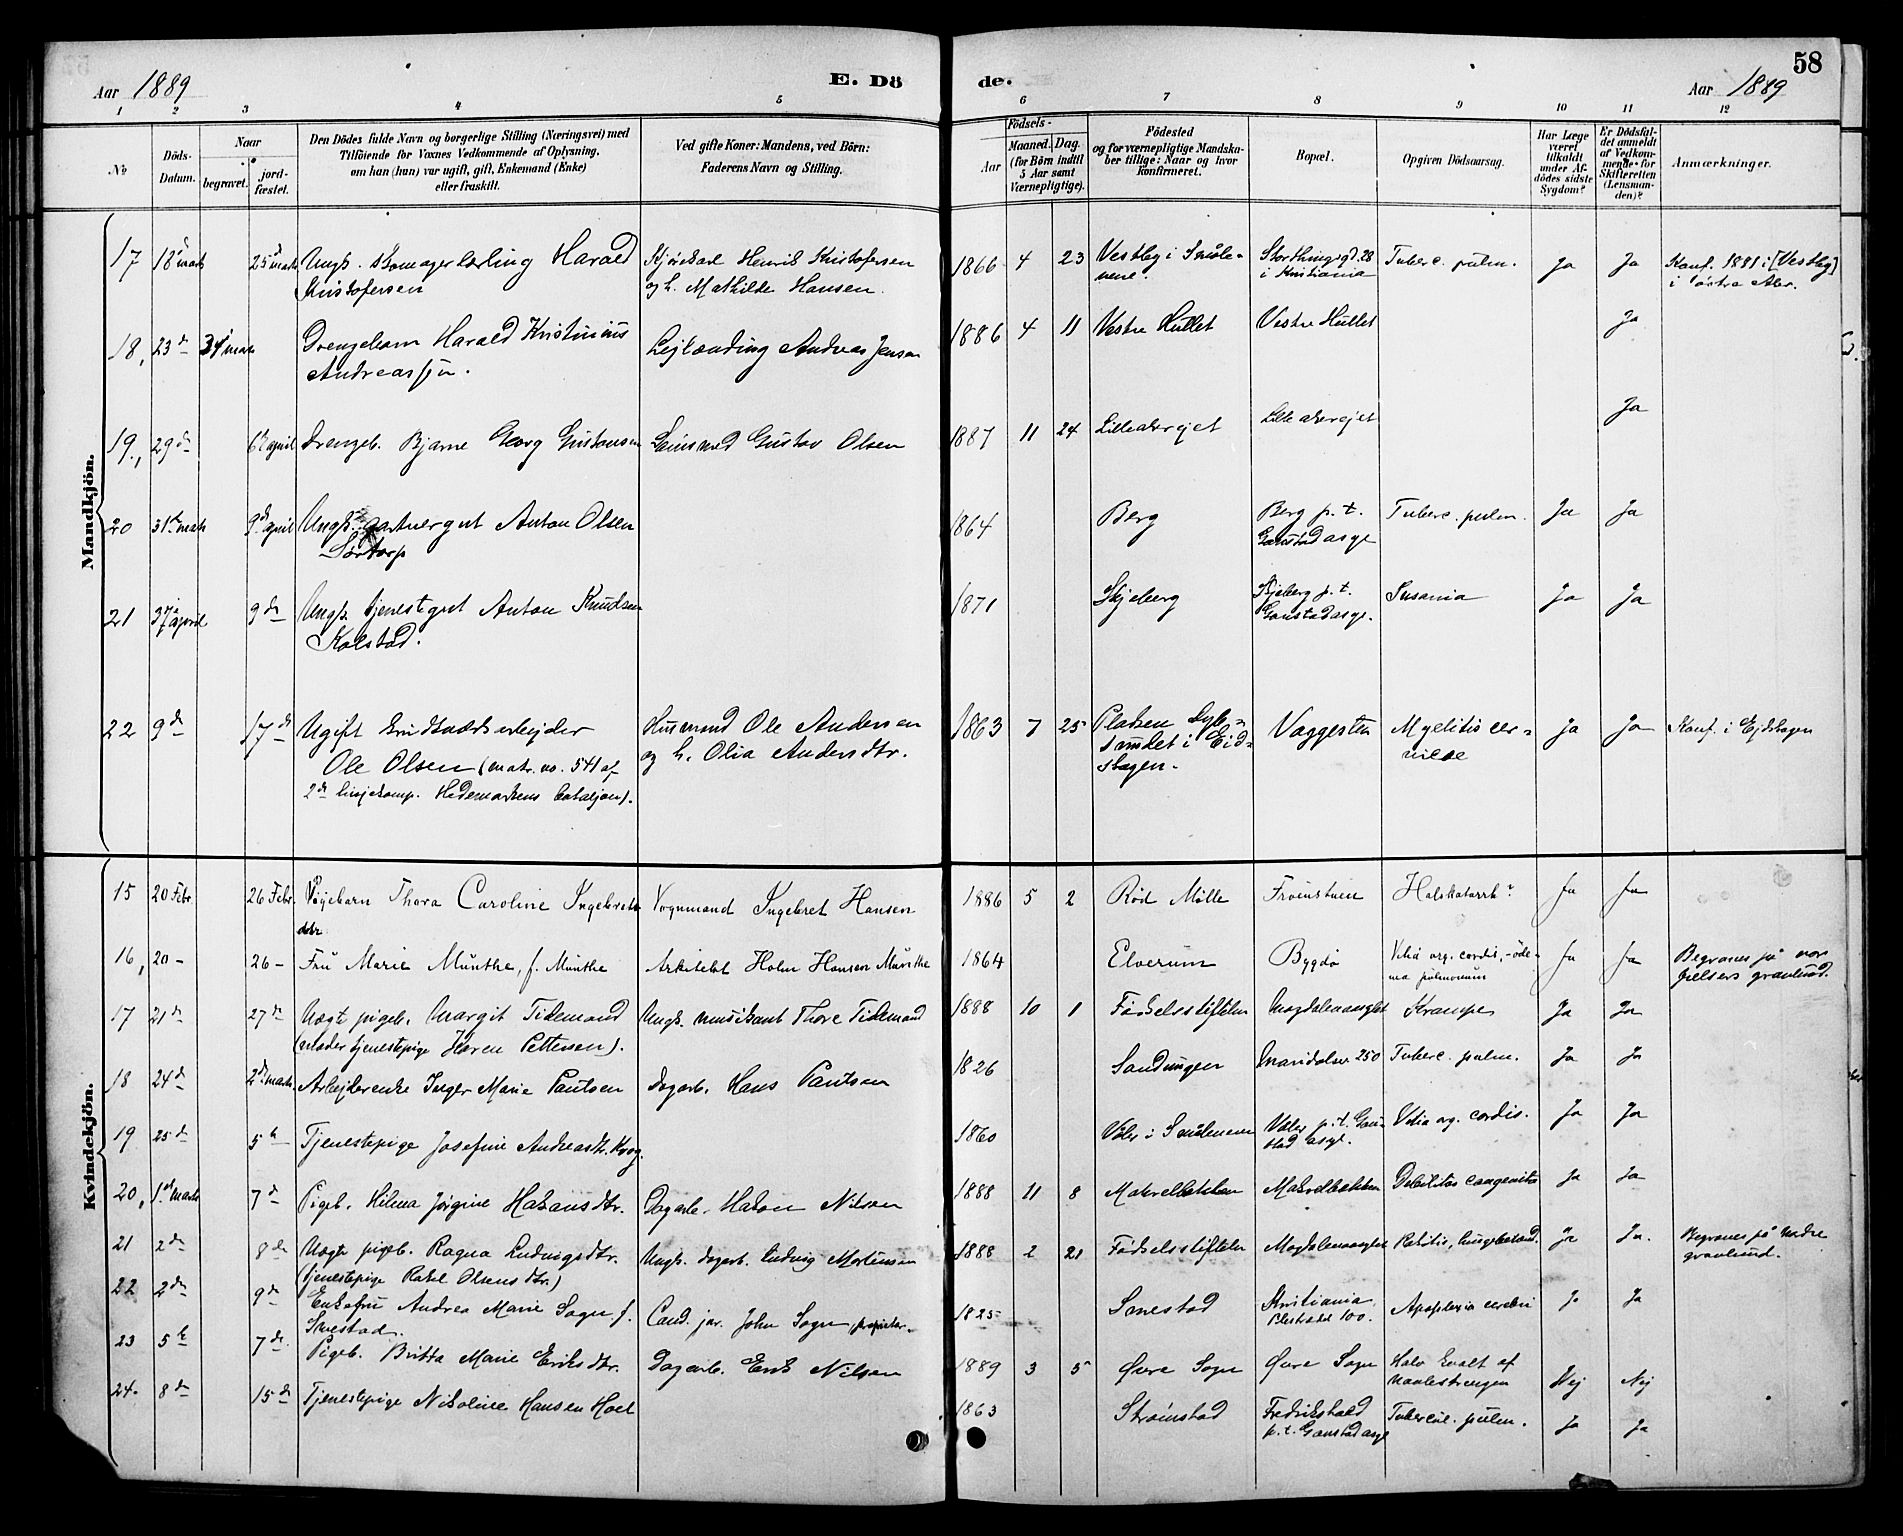 58
Aar 1889
E. Dö
de.
Aar 1889
1 2 3 4 5 6 7 8 9 10 11 12
No
Döds-Datum.
Naar
begravet.
jord-fæstet.
Den Dödes fulde Navn og borgerlige Stilling (Næringsvei) med
Tilföiende for Voxnes Vedkommende af Oplysning,
om han (hun) var ugift, gift, Enkemand (Enke)
eller fraskilt.
Ved gifte Koner: Mandens, ved Börn:
Faderens Navn og Stilling.
Födsels-
Aar
Maaned.
Dag.
(for Börn indtil
5 Aar samt
Værnepligtige).
Födested
og for værnepligtige Mandska-
ber tillige: Naar og hvor
konfirmeret.
Bopæl.
Opgiven Dödsaarsag.
Har Læge
været
tilkaldt
under Af-
dödes sidste
Sygdom?
Er Dödsfal-
det anmeldt
af Vedkom-
mende for
Skifteretten
(Lensman-
den)?
Anmærkninger.
Mandkjön.
17 18 marts 25 marts Ungk. skomagerlærling Harald
Kristofersen
Henrik Kristofersen
og h. Mathilde Hansen.
1866 4 23 Vestby i Småle-
nene. Storthingsgd. 28
i Kristiania Tuberc. pulm. Ja Ja Konf. 1881 i [Vestby]
i østre Aker.
18, 23de Drengebarn Harald Kristinius
Andreassøn.
Lejlænding Andreas Jensen
1886 4 11 Vestre Hullet Vestre Hullet Ja
19., 29de 6te april Drengeb. Bjarne Georg Gustavsen Gustav Olsen
1887 11 24 Lilleakerejet Lilleakerejet Ja
20 31te marts 9de april Ungk. gartnergut Anton Olsen
Sørtorp
1864 Berg Berg p. t.
Gaustad asyl Tuberc. pulm. Ja Ja
21 april 9de Ungk. tjenestegut Anton Knudsen
Kolstad.
1871 Skjeberg Skjeberg p. t.
Gaustad asyl. Ja Ja
22 9de 17de Ugift
Ole Olsen (matr. no. 541 af
2de linjekomp. Hedemarkens bataljon).
Husmand Ole Andersen
og h. Olia Andersdtr.
1863 7 25 Pladsen
i Eid-
skogen. Vaggesten Myelitis cer-
vicae Ja Ja Konf. i Ejdskogen
Kvindekjön.
15 20 Febr. 26 Febr. Pigebarn Thora Caroline Ingebrets
datr
Vognmand Ingebret Hansen
1886 5 2 Rød Mølle Frøenstuen Halskatarrh? Ja Ja
16, 20 - 26 - Fru Marie Munthe, f. Munthe Arkitekt Holm Hansen Munthe
1864 Elverum Bygdø Vitia org. cordis, - øde-
ma pulmonum Ja Ja Begraves på vor
frelsers gravlund.
17 21de 27de Uægte pigeb. Margit Tidemand
(moder tjenestepige Karen Pettersen).
Ungk. musikant Thore Tidemand
1888 10 1 Fødselsstiftelsen Magdalenaasylet Krampe Ja Ja
18 24de 2den marts Arbejderenke Inger Marie Paulsen Dagarb. Hans Paulsen
1826 Sandungen Maridalsv. 250 Tuberc. pulm. Ja Ja
19 25de 5te Tjenestepige Josefine Andreasdtr.
1860 Våler i Smålenene Våler p. t. Gau-
stad asyl. Vitia org. cordis. Ja Ja
20, 1ste marts 7de Pigeb. Helena Jørgine Hakansdtr. Dagarb. Hakon Nilsen
1888 11 8 Makrelbekken Makrelbekken Debilitas congenita Ja Ja
21 2den 8de Uægte pigeb. Ragna Ludvigsdtr.
(tjenestepige Rakel Olsensdtr.)
Ungk. dagarb. Ludvig Mortensen
1888 2 21 Fødselsstiftelsen Magdalenaasylet Rakitis, lungebetænd. Ja Ja. Begraves på nedre
gravlund.
22 2den 9de Enkefru Andrea Marie Sogn f.
Smestad.
Cand. jur. John Sogn proprietær.
1825 Smestad Kristiania,
Pilestrædet 100. Apoplexia cerebri Ja Ja
23 5te 7de Pigeb. Britta Marie Eriksdtr. Dagarb. Erik Nilsen
1889 3 5 Øvre Sogn Øvre Sogn
Navlestrengen Nej Nej
24. 8de 15de Tjenestepige Nikoline Hansen Hoel
1863 Strømstad Fredrikshald
p. t. Gaustad asyl Tubercul. pulm. Ja Ja